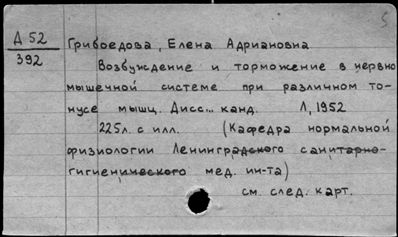 5
Д 52
392
Грибоедова, Елена Адриановна
Возбуждение и торможение в нервно
мышечной системе при различном то-
нусе мышц. Дисс... канд. Л, 1952
225л. с илл. (Кафедра нормальной
физиологии Ленинградского санитарно-
гигиенического мед. ин-та)
см. след. карт.